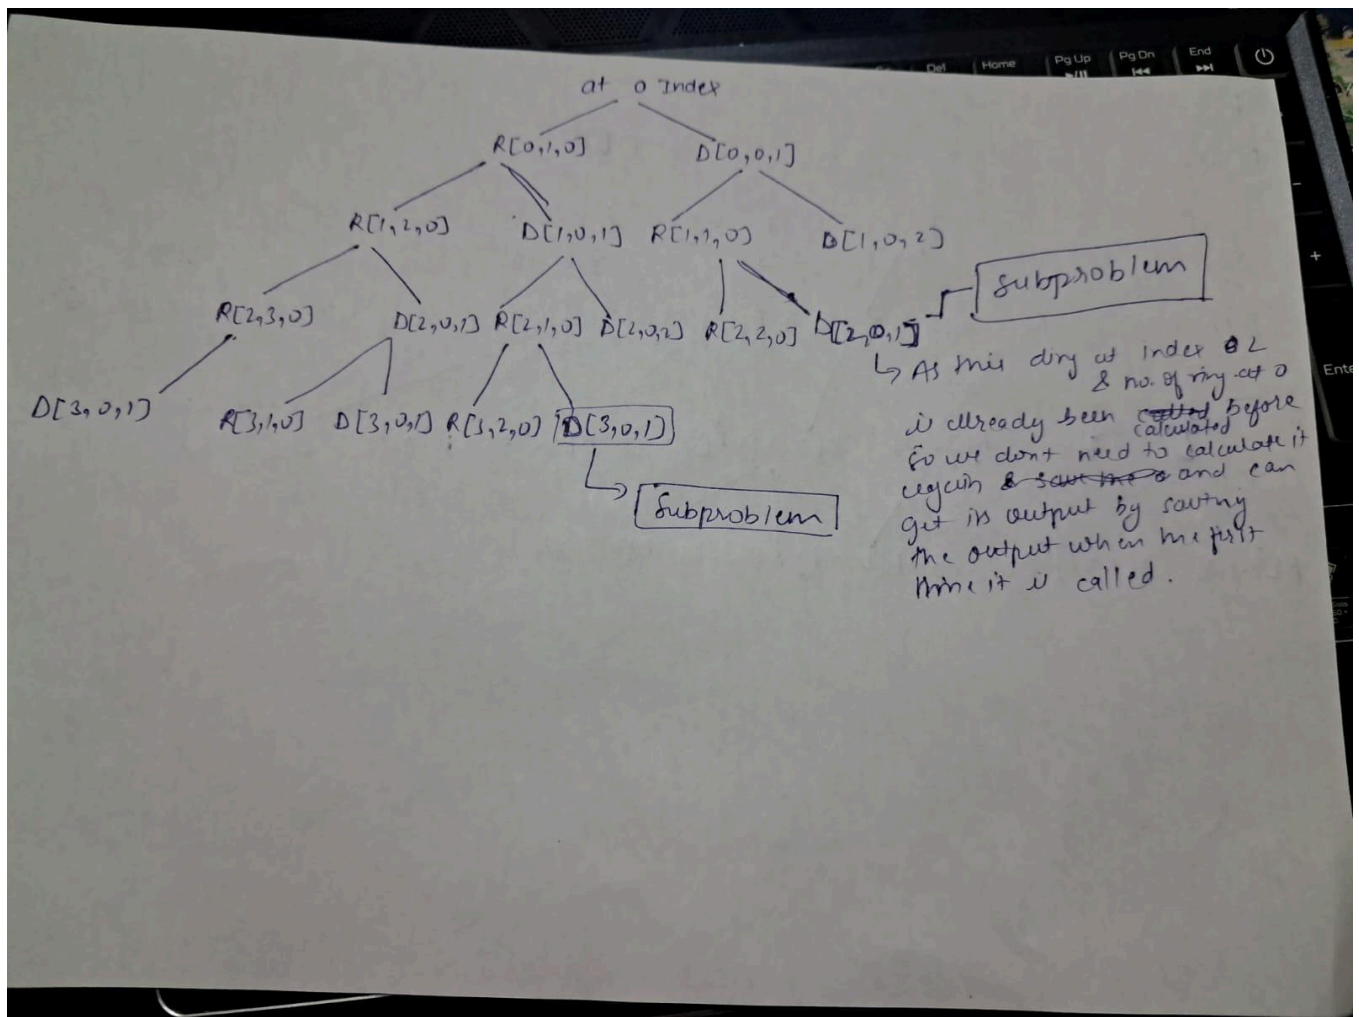 Del
Home
Pg Up
Pg Dn
End
at 0 Index
R[0,1,0] D[0,0,1]
R[1,2,0] D[1,0,1] R[1,1,0] D[1,0,2]
Subproblem
R[2,3,0] D[2,0,1] R[2,1,0] D[2,0,2] R[2,2,0] D[2,0,1]
D[3,0,1] R[3,1,0] D[3,0,1] R[3,2,0] D[3,0,1]
Subproblem
As this at index 2
& no. of ring at 0
is already been before
calculated
so we dont need to calculate it
again and can
get its output by saving
the output when the first
time it is called.
+
Ente